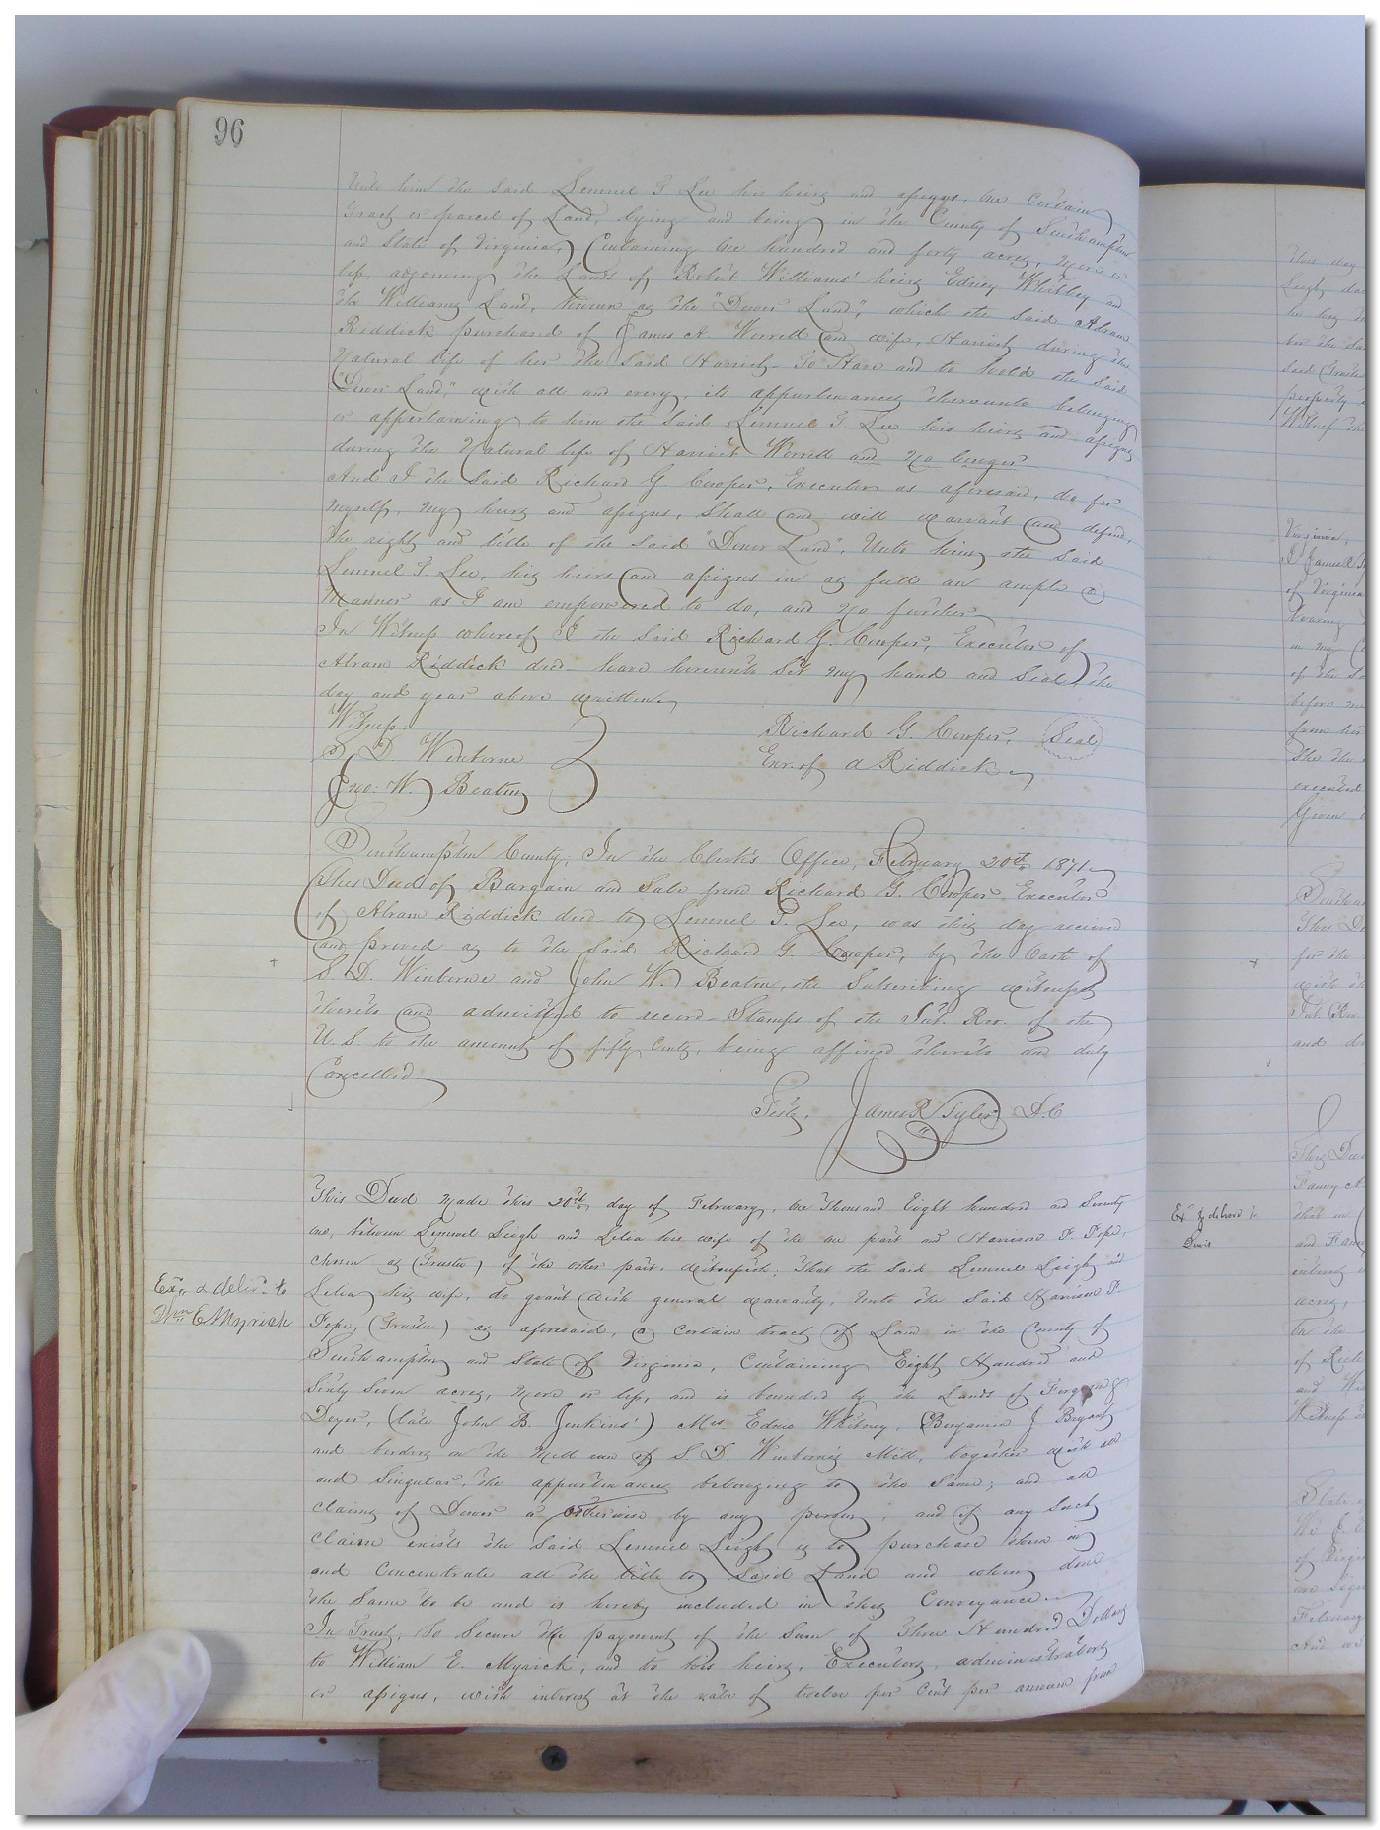 96
Unto him the Said Lemuel T Lee his heirs and assigns, One Certain
Tract or parcel of Land, lying and being in the County of Southampton
and State of Virginia, Containing One hundred and forty acres, more or
less, adjoining the Lands of Robert Williams' heirs Edney Whitley and
the Williams Land, known as the "Dower Land", which the Said Abram
Riddick purchased of James A. Worrell and wife, Harriet, during the
Natural life of her the Said Harriet - To Have and to hold the Said
"Dower Land," with all and every, its appurtenances thereunto belonging
or appertaining to him the Said Lemuel T Lee his heirs and assigns
during the Natural life of Harriet Worrell and No longer
And I the Said Richard G Cooper, Executor as aforesaid, do for
myself, my heirs and assigns, Shall and will warrant and defend,
the right and title of the Said "Dower Land", Unto him the Said
Lemuel T. Lee, his heirs and assigns in as full an ample a
Manner as I am empowered to do, and No further
In Witness whereof I the Said Richard G. Cooper, Executor of
Abram Riddick decd have hereunto Set my hand and Seal, the
day and year above written
Witness
Richard G. Cooper, Seal
S. D. Winborne
Exr. of A Riddick
Jno. W. Beaton
Southampton County, In the Clerk's Office, February 20th 1871
This Deed of Bargain and Sale from Richard G. Cooper Executor
of Abram Riddick decd to Lemuel T. Lee, was this day received
and proved as to the Said Richard G. Cooper, by the Oath of
S. D. Winborne and John W. Beaton, the Subscribing witnesses
thereto and admitted to record - Stamps of the Int. Rev. of the
U.S. to the amount of fifty Cents, being affixed thereto and duly
Cancelled
Teste, James R. Tyler D.C
This Deed Made this 20th day of February, One Thousand Eight hundred and Seventy
one, between Lemuel Leigh and Lelia his wife of the one part and Harrison P. Pope,
chosen as (Trustee) of the other part. Witnesseth: That the said Lemuel Leigh and
Lelia his wife, do grant with general warranty, Unto the Said Harrison P.
Pope, (Trustee) as aforesaid, a certain tract of Land in the County of
Southampton and State of Virginia, Containing Eight Hundred and
Sixty Seven acres, More or less, and is bounded by the Lands of
Deyer, (late John B. Jenkins') Mrs Edna Whitney, Benjamin J Bryant
and binding on the Mill run of S. D. Winborne's Mill, together with all
and Singular, the appurtenances belonging to the Same; and all
claims of Dower or otherwise by any person, and if any Such
claim exists the Said Lemuel Leigh is to purchase them in
and Concentrate all the title to Said Land and when done
the Same to be and is hereby included in this Conveyance
In Trust, to Secure the payment of the Sum of Three Hundred Dollars
to William E. Myrick, and to his heirs, Executors, administrators
or assigns, with interest at the rate of twelve per Cent per annum from
Exd. & deliv. to
Wm E Myrick